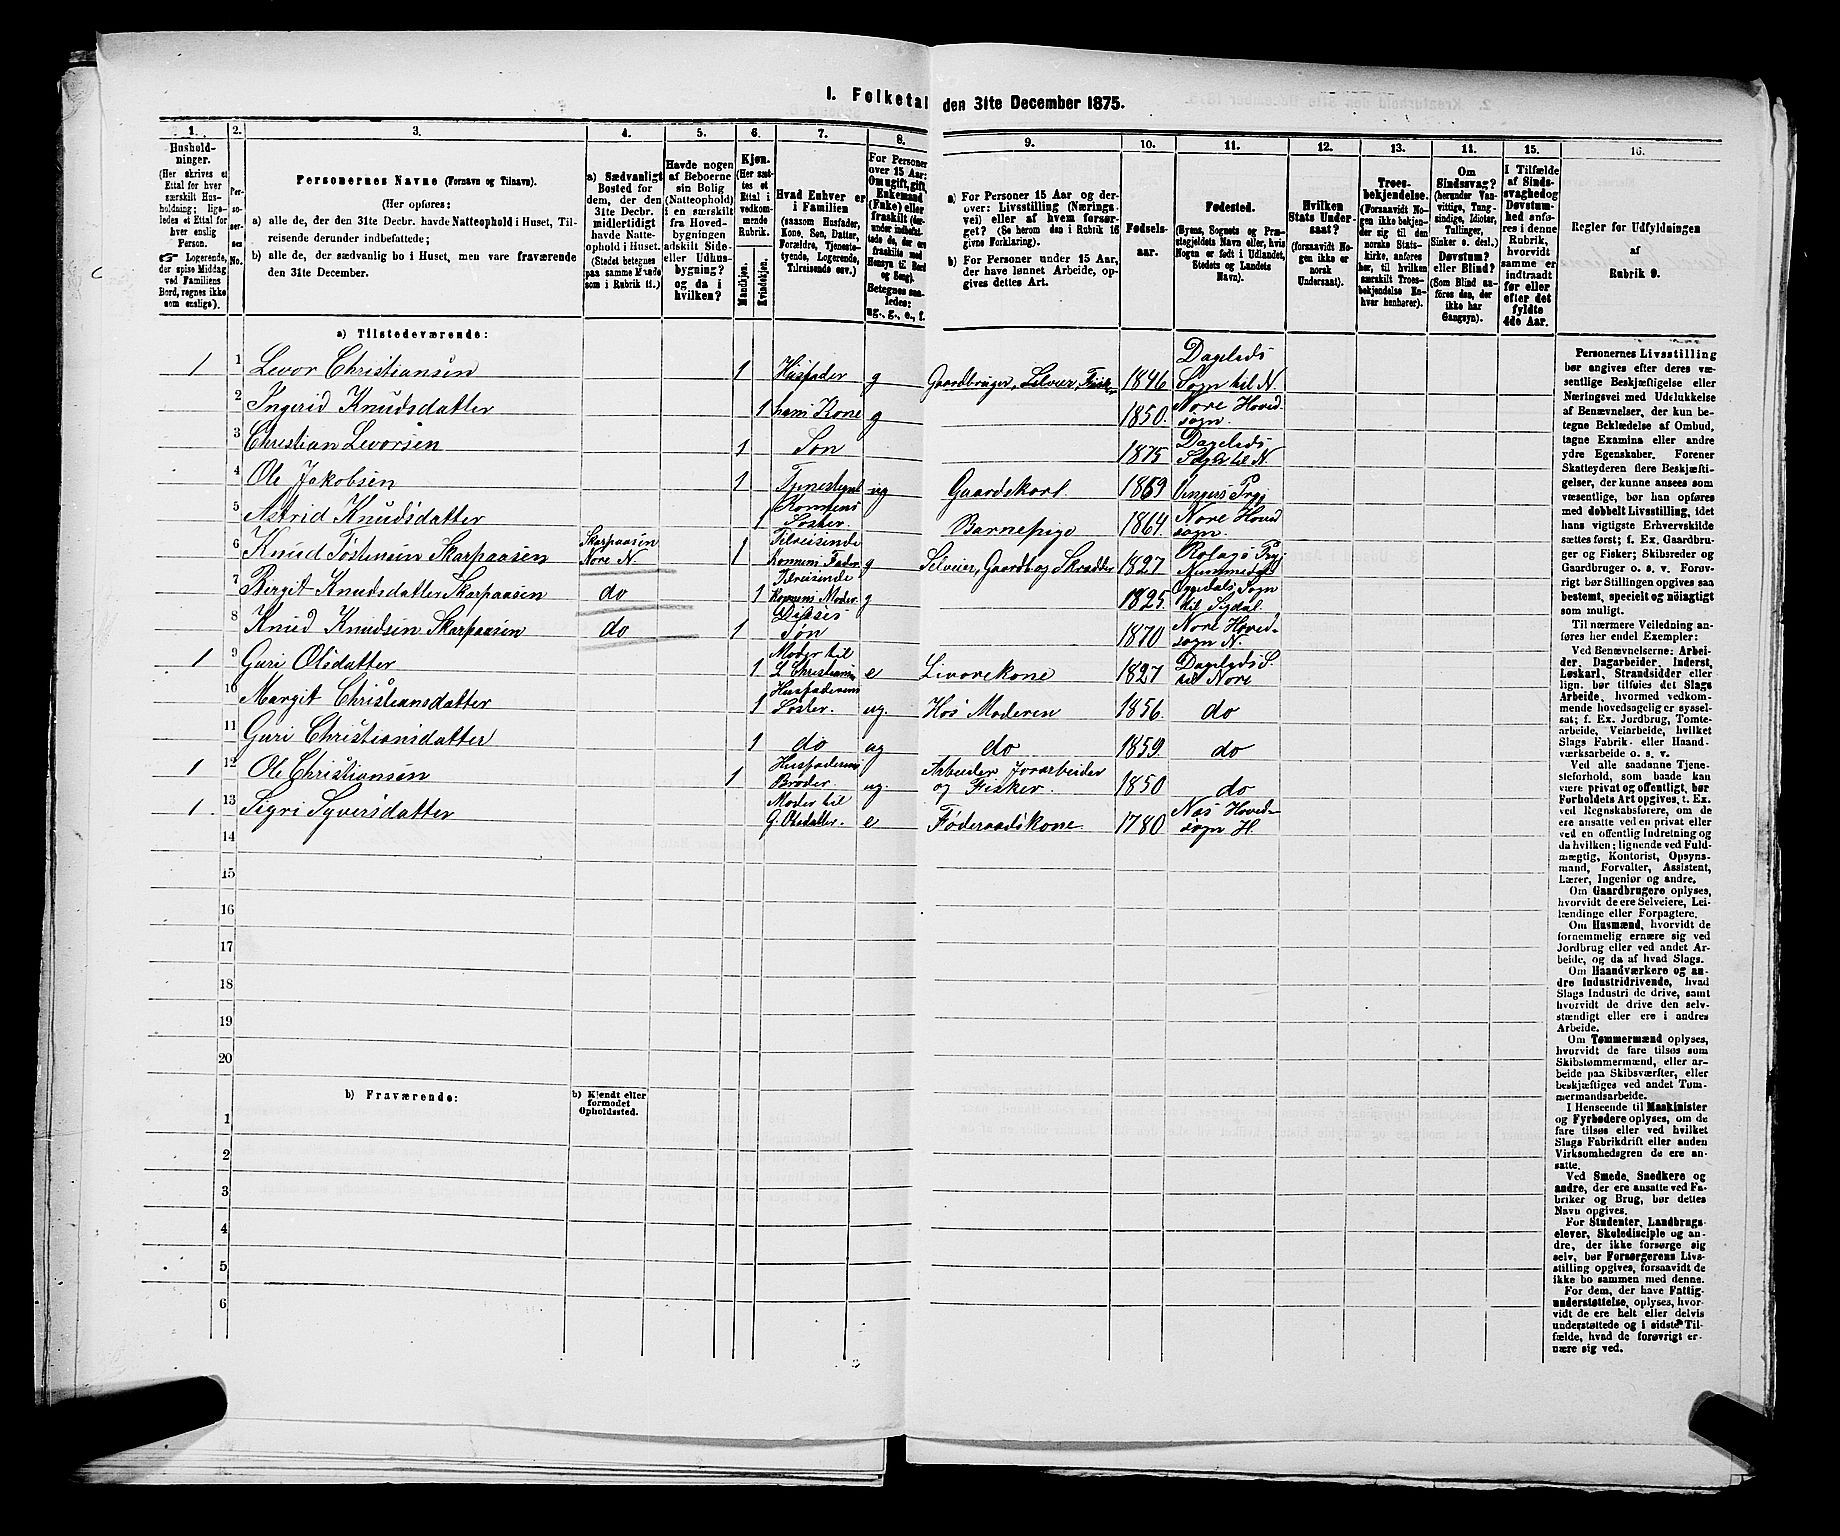 1. Folketal den 31te December 1875.
1. 2. 3. 4. 5. 6. 7. 8. 9. 10. 11. 12. 13. 11. 15. 16.
Hushold-
ninger.
(Her skrives et
Ettal for hver
særskilt Hus-
holdning; lige-
ledes et Ettal for
hver enslig
Person.
☞ Logerende,
der spise Middag
ved Familiens
Bord, regnes ikke
som enslige).
Personernes Navne (Fornavn og Tilnavn).
(Her opføres:
a) alle de, der den 31te Decbr. havde Natteophold i Huset, Til-
reisende derunder indbefattede;
b) alle de, der sædvanlig bo i Huset, men vare fraværende
den 31te December.
a) Sædvanligt
Bosted for
dem, der den
31te Decbr.
midlertidigt
havde Natte-
ophold i Huset.
(Stedet betegnes
paa samme Maade
som i Rubrik 11.)
Havde nogen
af Beboerne
sin Bolig
(Natteophold)
i en særskilt
fra Hoved-
bygningen
adskilt Side-
eller Udhus-
bygning?
og da i
hvilken?
Kjøn.
(Her sæt-
tes et
Ettal i
vedkom-
mende
Rubrik.
Mandkjøn.
Kvindekjøn.
Hvad Enhver er
i Familien
(saasom Husfader,
Kone, Søn, Datter,
Forældre, Tjeneste-
tyende, Logerende,
Tilreisende osv.)
For Personer
over 15 Aar:
Om ugift, gift,
Enkemand
(Enke) eller
fraskilt
Betegnes saa-
ledes:
ug., g., e., f.
a) For Personer 15 Aar og der-
over: Livsstilling (Nærings-
vei) eller af hvem forsør-
get? (Se herom den i Rubrik 16
givne Forklaring).
b) For Personer under 15 Aar,
der have lønnet Arbeide, op-
gives dettes Art.
Fødsels-
aar.
Fødested.
(Byens, Sognets og Præ-
stegjeldets Navn eller, hvis
Nogen er født i Udlandet,
Stedets og Landets
Navn).
Hvilken
Stats Under-
saat?
(forsaavidt No-
gen ikke er
norsk
Undersaat).
Troes-
bekjendelse.
(Forsaavidt No-
gen ikke bekjen-
der sig til den
norske Stats-
kirke, anføres
her, til hvilken
særskilt Troes-
bekjendelse En-
hver henhører).
Om
Sindssvag?
(herunder Van-
vittige, Tung-
sindige, Idioter,
Tullinger,
Sinker o. desl.)
Døvstum?
eller Blind?
(Som Blind an-
føres den, der
ikke har
Gangsyn).
I Tilfælde
af Sinds-
svaghed og
Døvstum-
hed anfø-
res i denne
Rubrik,
hvorvidt
samme er
indtraadt
før eller
efter det
fyldte
4de Aar.
Regler for Udfyldningen
af
Rubrik 9.
a) Tilstedeværende:
1 1 Levor Christiansen 1 Husfader g Gaardbruger, Selveier, Fisker 1846 Dagelids Sogn til N.
2 Ingerid Knudsdatter 1 hans Kone g 1850. Nore Hovedsogn.
3 Christian Levorsen 1 Søn 1875 Dagelids Sogn til N.
4 Ole Jakobsen 1 Tjenestegut ug Gaardskarl. 1859 Vingers Prgj
5 Astrid Knudsdatter 1 Konens Søster. Barnepige 1864. Nore Hovedsogn.
6 Knud Tostensen Skarpaasen Skarpaasen Nore N. 1 Tilreisende Konens Fader g Selveier, Gaardb. og Skrædder 1827 Rolags Prgj Nummedal
7 Birgit Knudsdatter Skarpaasen do 1 Tilreisende Konens Moder g 1825. Sogn til Sigdal.
8 Knud Knudsen Skarpaasen do 1 Disses Søn 1870 Nore Hovedsogn N.
1 9 Guri Olsdatter 1 Moder til L Christiansen e Livørekone 1827 Dagelids S. til Nore
10 Margit Christiansdatter 1 Husfaderens Søster. ug. Hos Moderen 1856. do
11 Guri Christiansdatter 1 do ug do 1859. do
1 12 Ole Christiansen 1 Husfaderens Broder ug. Arbeider Jorarbeider og Fisker. 1850 do
1 13 Sigri Syversdatter 1 Moder til G. Olsdatter. e Føderaadskone. 1780 Nas Hovedsogn H.
14
15
16
17
18
19
20
b) Fraværende:
b) Kjendt eller
formodet
Opholdssted.
1
2
3
4
5
6
Personernes Livsstilling
bør angives efter deres væ-
sentlige Beskjæftigelse eller
Næringsvei med Udelukkelse
af Benævnelser, der kun be-
tegne Beklædelse af Ombud,
tagne Examina eller andre
ydre Egenskaber. Forener
Skatteyderen flere Beskjæfti-
gelser, der kunne ansees som
væsentlige, bør han opføres
med dobbelt Livsstilling, idet
hans vigtigste Erhvervskilde
sættes først; f. Ex. Gaardbru-
ger og Fisker; Skibsreder og
Gaardbruger o. s. v. Forøv-
rigt bør Stillingen opgives saa
bestemt, specielt og nøiagtigt
som muligt.
Til nærmere Veiledning an-
føres her endel Exempler:
Ved Benævnelserne: Arbei-
der, Dagarbeider, Inderst,
Løskarl, Strandsidder eller
lign. bør tilføies det Slags
Arbeide, hvormed vedkom-
mende hovedsagelig er syssel-
sat; f. Ex. Jordbrug, Tomte-
arbeide, Veiarbeide, hvilket
Slags Fabrik- eller Haand-
værksarbeide o. s. v.
Ved alle saadanne Tjene-
steforhold, som baade kan
være privat og offentligt, bør
Forholdets Art opgives, t. Ex.
ved Regnskabsførere, om de
ere ansatte ved en privat eller
ved en offentlig Indretning og
da hvilken; lignende ved Fuld-
mægtig, Kontorist, Opsyns-
mand, Forvalter, Assistent,
Lærer, Ingeniør og andre.
Om Gaardbrugere oplyses,
hvorvidt de ere Selveiere, Lei-
lændinge eller Forpagtere.
Om Husmænd, hvorvidt de
fornemmelig ernære sig ved
Jordbrug eller ved andet Ar-
beide, og da af hvad Slags.
Om Haandværkere og an-
dre Industridrivende, hvad
Slags Industri de drive, samt
hvorvidt de drive den selv-
stændigt eller ere i andres
Arbeide.
Om Tømmermænd oplyses,
hvorvidt de fare tilsøs som
Skibstømmermænd, eller ar-
beide paa Skibsværfter, eller
beskjæftiges ved andet Tøm-
mermandsarbeide.
I Henseende til Maskinister
og Fyrbødere oplyses, om de
fare tilsøs eller ved hvilket
Slags Fabrikdrift eller anden
Virksomhedsgren de ere an-
satte.
Ved Smede, Snedkere og
andre, der ere ansatte ved Fa-
briker og Brug, bør dettes
Navn opgives.
For Studenter, Landbrugs-
elever, Skoledisciple og an-
dre, der ikke forsørge sig
selv, bør Forsørgerens Livs-
stilling opgives, forsaavidt de
ikke bo sammen med denne.
For dem, der have Fattig-
understøttelse, oplyses, hvor-
vidt de ere helt eller delvis
understøttede og i sidste Til-
fælde, hvad de forøvrigt er-
nære sig ved.